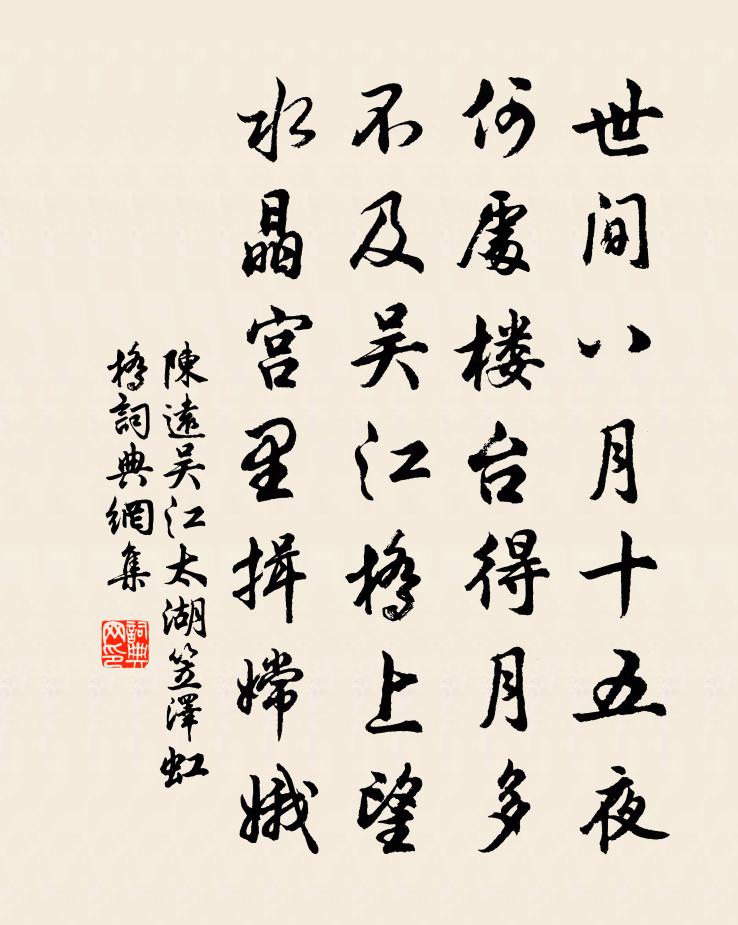 世间八月十五夜
何處楼台得月多
不及吴江橋上望
水晶宫里揖嫦娥
陳遠吴江太湖笠澤虹
橋詞典網集
詞典
网印